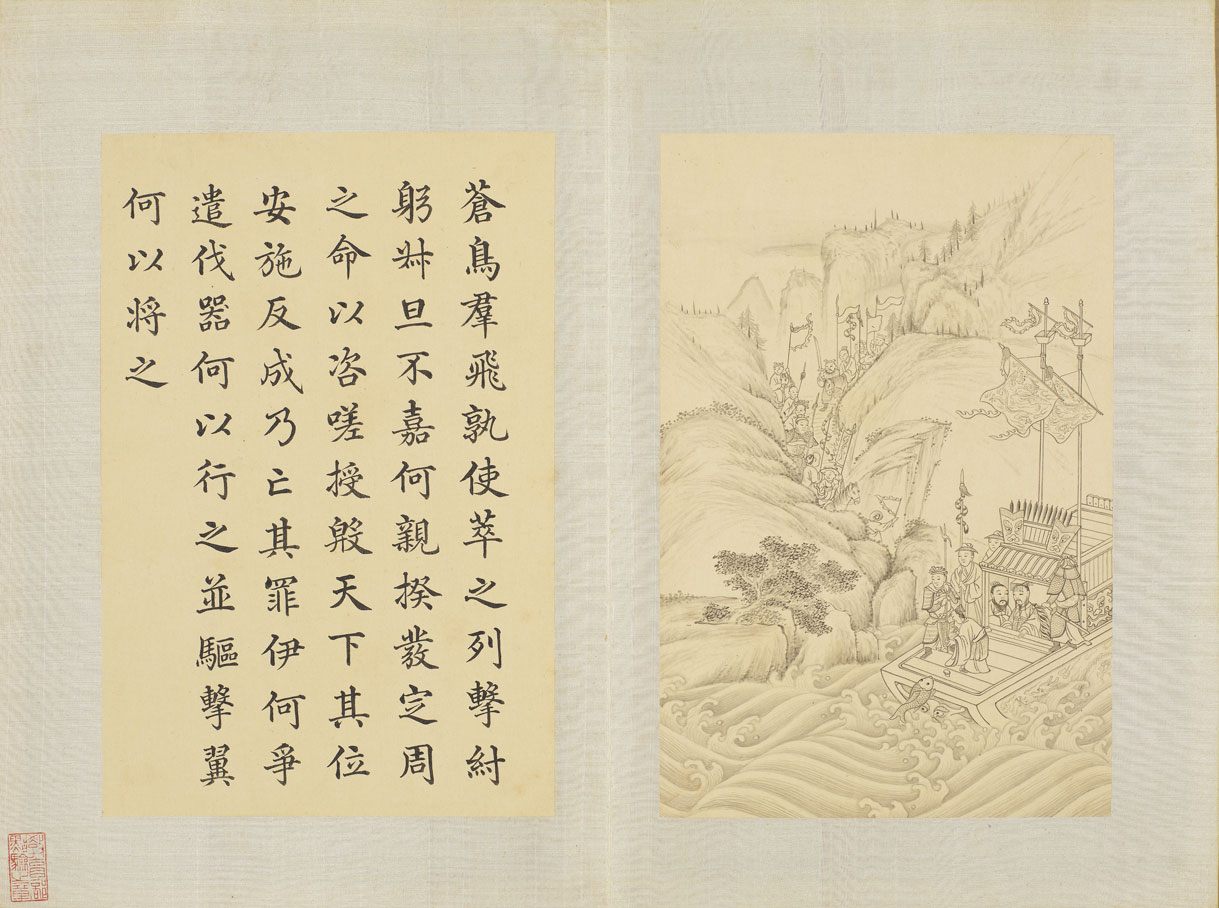 蒼鳥羣飛孰使萃之列擊紂
躬叔旦不嘉何親揆發定周
之命以咨嗟授殷天下其位
安施反成乃亡其罪伊何爭
遣伐器何以行之並驅擊翼
何以將之
教育部
點驗之章